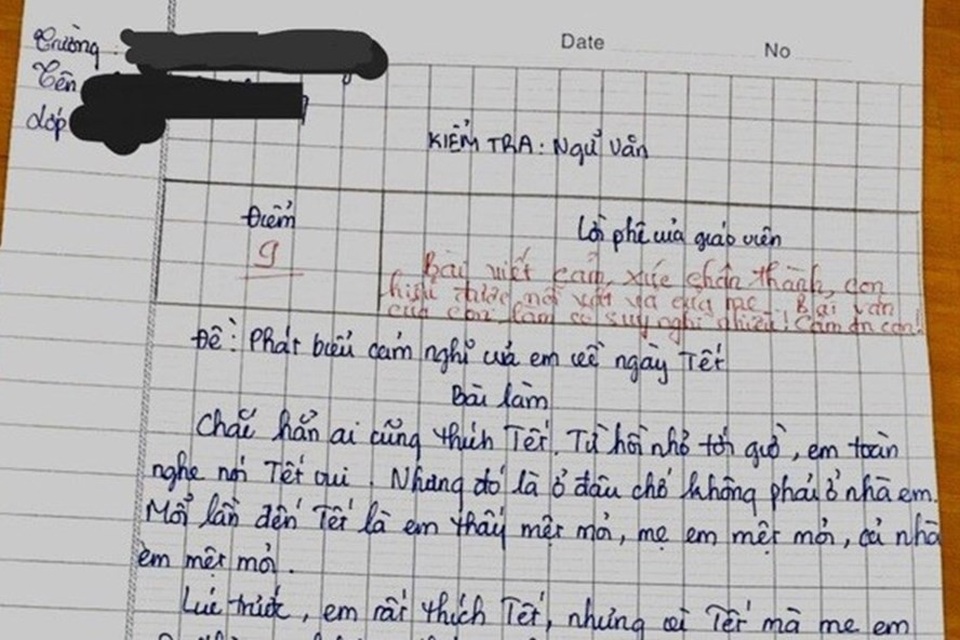 Trường:
Tên
Lớp
Date No
KIỂM TRA: Ngữ Văn
Điểm
9
Lời phê của giáo viên
Bài viết cảm xúc chân thành, con
hiểu được nỗi vất vả của mẹ. Bài văn
của con làm cô suy nghĩ nhiều! Cảm ơn con!
Đề: Phát biểu cảm nghĩ của em về ngày Tết
Bài làm
Chắc hẳn ai cũng thích Tết. Từ hồi nhỏ tới giờ, em toàn
nghe nói Tết vui. Nhưng đó là ở đâu chớ không phải ở nhà em.
Mỗi lần đến Tết là em thấy mệt mỏi, mẹ em mệt mỏi, cả nhà
em mệt mỏi.
Lúc trước, em rất thích Tết, nhưng vì Tết mà mẹ em